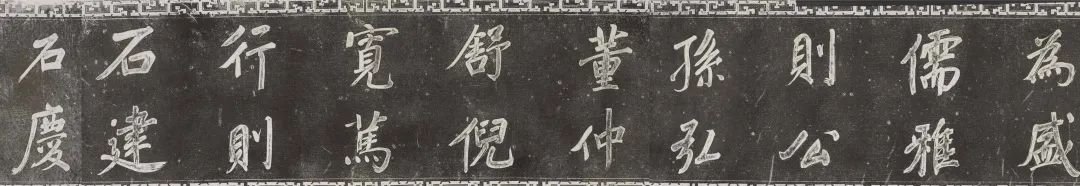 為盛
儒雅
則公
孫弘
董仲
舒倪
寬篤
行則
石建
石慶